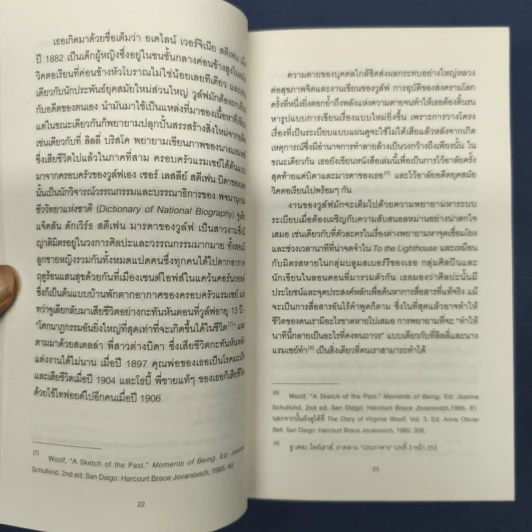 เธอเกิดมาด้วยชื่อเต็มว่า อเดไลน์ เวอร์จิเนีย สตีเฟน เมื่อ
ปี 1882 เป็นเด็กผู้หญิงซึ่งอยู่ในชนชั้นกลางค่อนข้างสูงในสมัย
วิคตอเรียนที่ค่อนข้างหัวโบราณไม่ใช่น้อยเลยทีเดียว และ
เช่นเดียวกับนักประพันธ์ยุคสมัยใหม่ส่วนใหญ่ วูล์ฟมักต้อง
กับอดีตของตนเอง นำมันมาใช้เป็นแหล่งที่มาของเนื้อหา
แต่ในขณะเดียวกันก็พยายามปลุกปั้นสรรสร้างสิ่งใหม่จาก
เช่นเดียวกับที่ ลิลลี่ บริสโค พยายามเขียนภาพของนางแรมเซย์
ซึ่งเสียชีวิตไปแล้วในภาคที่สาม ครอบครัวแรมเซย์ได้ต้นแบบ
มาจากครอบครัวของวูล์ฟเอง เซอร์ เลสลีย์ สตีเฟน บิดาของเธอ
นั้นเป็นนักวิจารณ์วรรณกรรมและบรรณาธิการของ พจนานุกรม
ชีวิวิทยาแห่งชาติ (Dictionary of National Biography) จูเลีย
แจ็คสัน ดักเวิร์ธ สตีเฟน มารดาของวูล์ฟ เป็นสาวงามซึ่งมี
ญาติมิตรอยู่ในวงการศิลปะและวรรณกรรมมากมาย ทั้งสองมี
ลูกชายหญิงรวมกันทั้งหมดแปดคนซึ่งทุกคนได้ไปตากอากาศ
ฤดูร้อนแสนสุขด้วยกันที่เมืองเซนต์ไอฟส์ในแคว้นคอร์นวอลล์
ซึ่งก็เป็นต้นแบบบ้านพักตากอากาศของครอบครัวแรมเซย์ แต่
ทว่าจูเลียกลับมาเสียชีวิตอย่างกะทันหันตอนที่วูล์ฟอายุ 13 ปี
"โศกนาฏกรรมอันยิ่งใหญ่ที่สุดเท่าที่จะเกิดขึ้นได้ในชีวิต"[7] และ
ตามมาด้วยสเตลล่า พี่สาวต่างบิดา ซึ่งเสียชีวิตกะทันหันหลัง
แต่งงานได้ไม่นาน เมื่อปี 1897 คุณพ่อของเธอเป็นโรคมะเร็ง
และเสียชีวิตเมื่อปี 1904 และโธบี้ พี่ชายแท้ๆ ของเธอก็เสียชีวิต
ด้วยไข้ไทฟอยด์ไปอีกคนเมื่อปี 1906
[7] Woolf, "A Sketch of the Past." Moments of Being. Ed. Jeanne
Schulkind. 2nd ed. San Diego: Harcourt Brace Jovanovich, 1985. 40
22
ความตายของบุคคลใกล้ชิดส่งผลกระทบอย่างใหญ่หลวง
ต่อสุขภาพจิตและงานเขียนของวูล์ฟ การอุบัติของสงครามโลก
ครั้งที่หนึ่งยิ่งตอกย้ำถึงพลังแห่งความตายจนทำให้เธอต้องดิ้นรน
หารูปแบบการเขียนเรื่องแบบใหม่ยิ่งขึ้น เพราะการวางโครง
เรื่องที่เป็นระเบียบแบบแผนดูจะใช้ไม่ได้เสียแล้วหลังจากเกิด
เหตุการณ์ซึ่งมีอำนาจการทำลายล้างเป็นวงกว้างถึงเพียงนั้น ใน
ขณะเดียวกัน เธอยังเขียนหนังสือเล่มนี้เพื่อเป็นการไว้อาลัยครั้ง
สุดท้ายแด่บิดาและมารดาของเธอ[8] และไว้อาลัยอดีตยุคสมัย
วิคตอเรียนไปพร้อมๆ กัน
งานของวูล์ฟมักจะเต็มไปด้วยความพยายามหาระบบ
ระเบียบเมื่อต้องเผชิญกับความสับสนอลหม่านอย่างน่าตกใจ
เสมอ เช่นเดียวกับที่ตัวละครในเรื่องต่างพยายามหาจุดเชื่อมโยง
และช่วงเวลานาทีที่น่าจดจำใน To the Lighthouse และเหมือน
กับมิตรสหายในกลุ่มบลูมส์เบอร์รีของเธอ กลุ่มศิลปินและ
นักเขียนในลอนดอนที่มารวมตัวกัน เธอมองว่าศิลปะนั้นมี
ประโยชน์และจุดประสงค์หลักเพื่อค้นหาการสื่อสารที่แท้จริง แม้
จะเป็นการสื่อสารอันไร้คำพูดก็ตาม ซึ่งในที่สุดแล้วอาจทำให้
ชีวิตของคนเรามีอะไรขาดหายไปเสมอ การพยายามที่จะ "ทำให้
นาทีนี้กลายเป็นอะไรที่คงทนถาวร" แบบเดียวกับที่ลิลลี่และนาง
แรมเซย์ทำ[9] เป็นสิ่งเดียวที่คนเราสามารถทำได้
[8] Woolf, "A Sketch of the Past." Moments of Being. Ed. Jeanne
Schulkind. 2nd ed. San Diego: Harcourt Brace Jovanovich, 1985. 81.
นอกจากนั้นยังดูได้ที่ The Diary of Virginia Woolf. Vol. 3. Ed. Anne Olivier
Bell. San Diego: Harcourt Brace Jovanovich, 1980. 208.
[9] ดู เดอะ ไลท์เฮาส์, ภาคสาม "ประภาคาร" บทที่ 3 หน้า 253